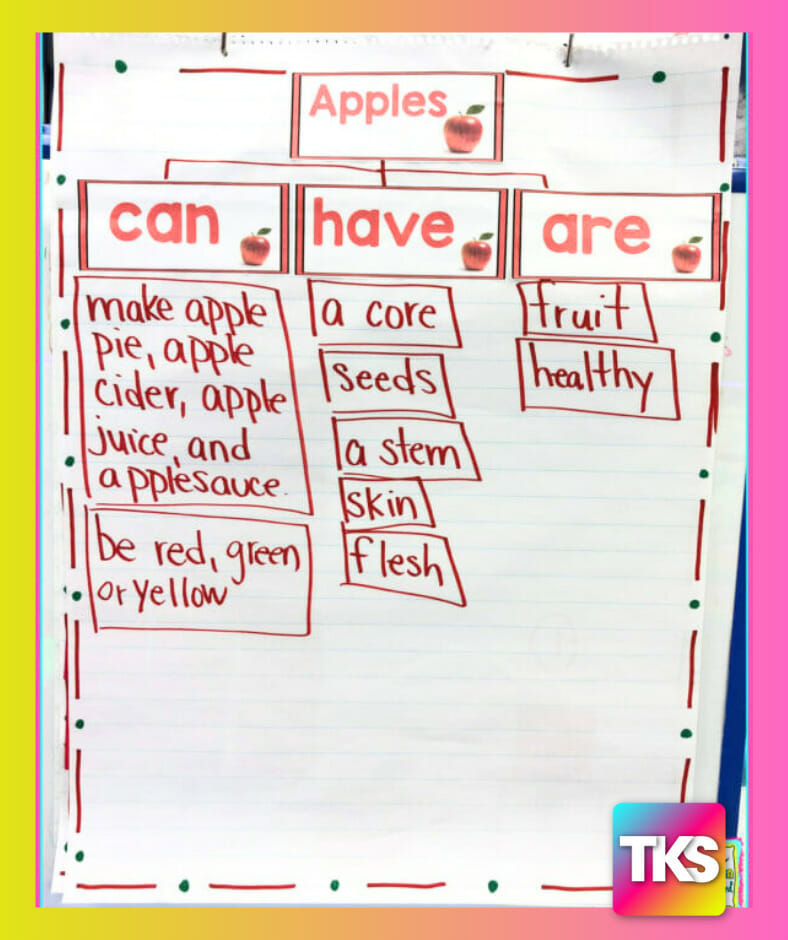 Apples
can
have
are
make apple
pie, apple
cider, apple
juice, and
applesauce.
be red, green
or yellow
a core
seeds
a stem
skin
flesh
fruit
healthy
TKS